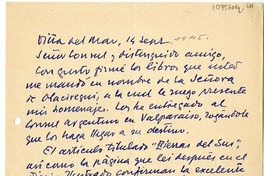 Viña del Mar, 14 Sept. 1945.
Señor Consul y distinguido amigo,
Con gusto firmé los libros que usted
me mandó en nombre de la Señora
de a la cual le ruego presente
mis homenajes. Los he entregado al
Consul argentino en Valparaíso, rogándole
que los haga llegar a su destino.
El artículo titulado "Hienas del Sur",
así como la página que leí después en el
Ilustrado confirman la excelente